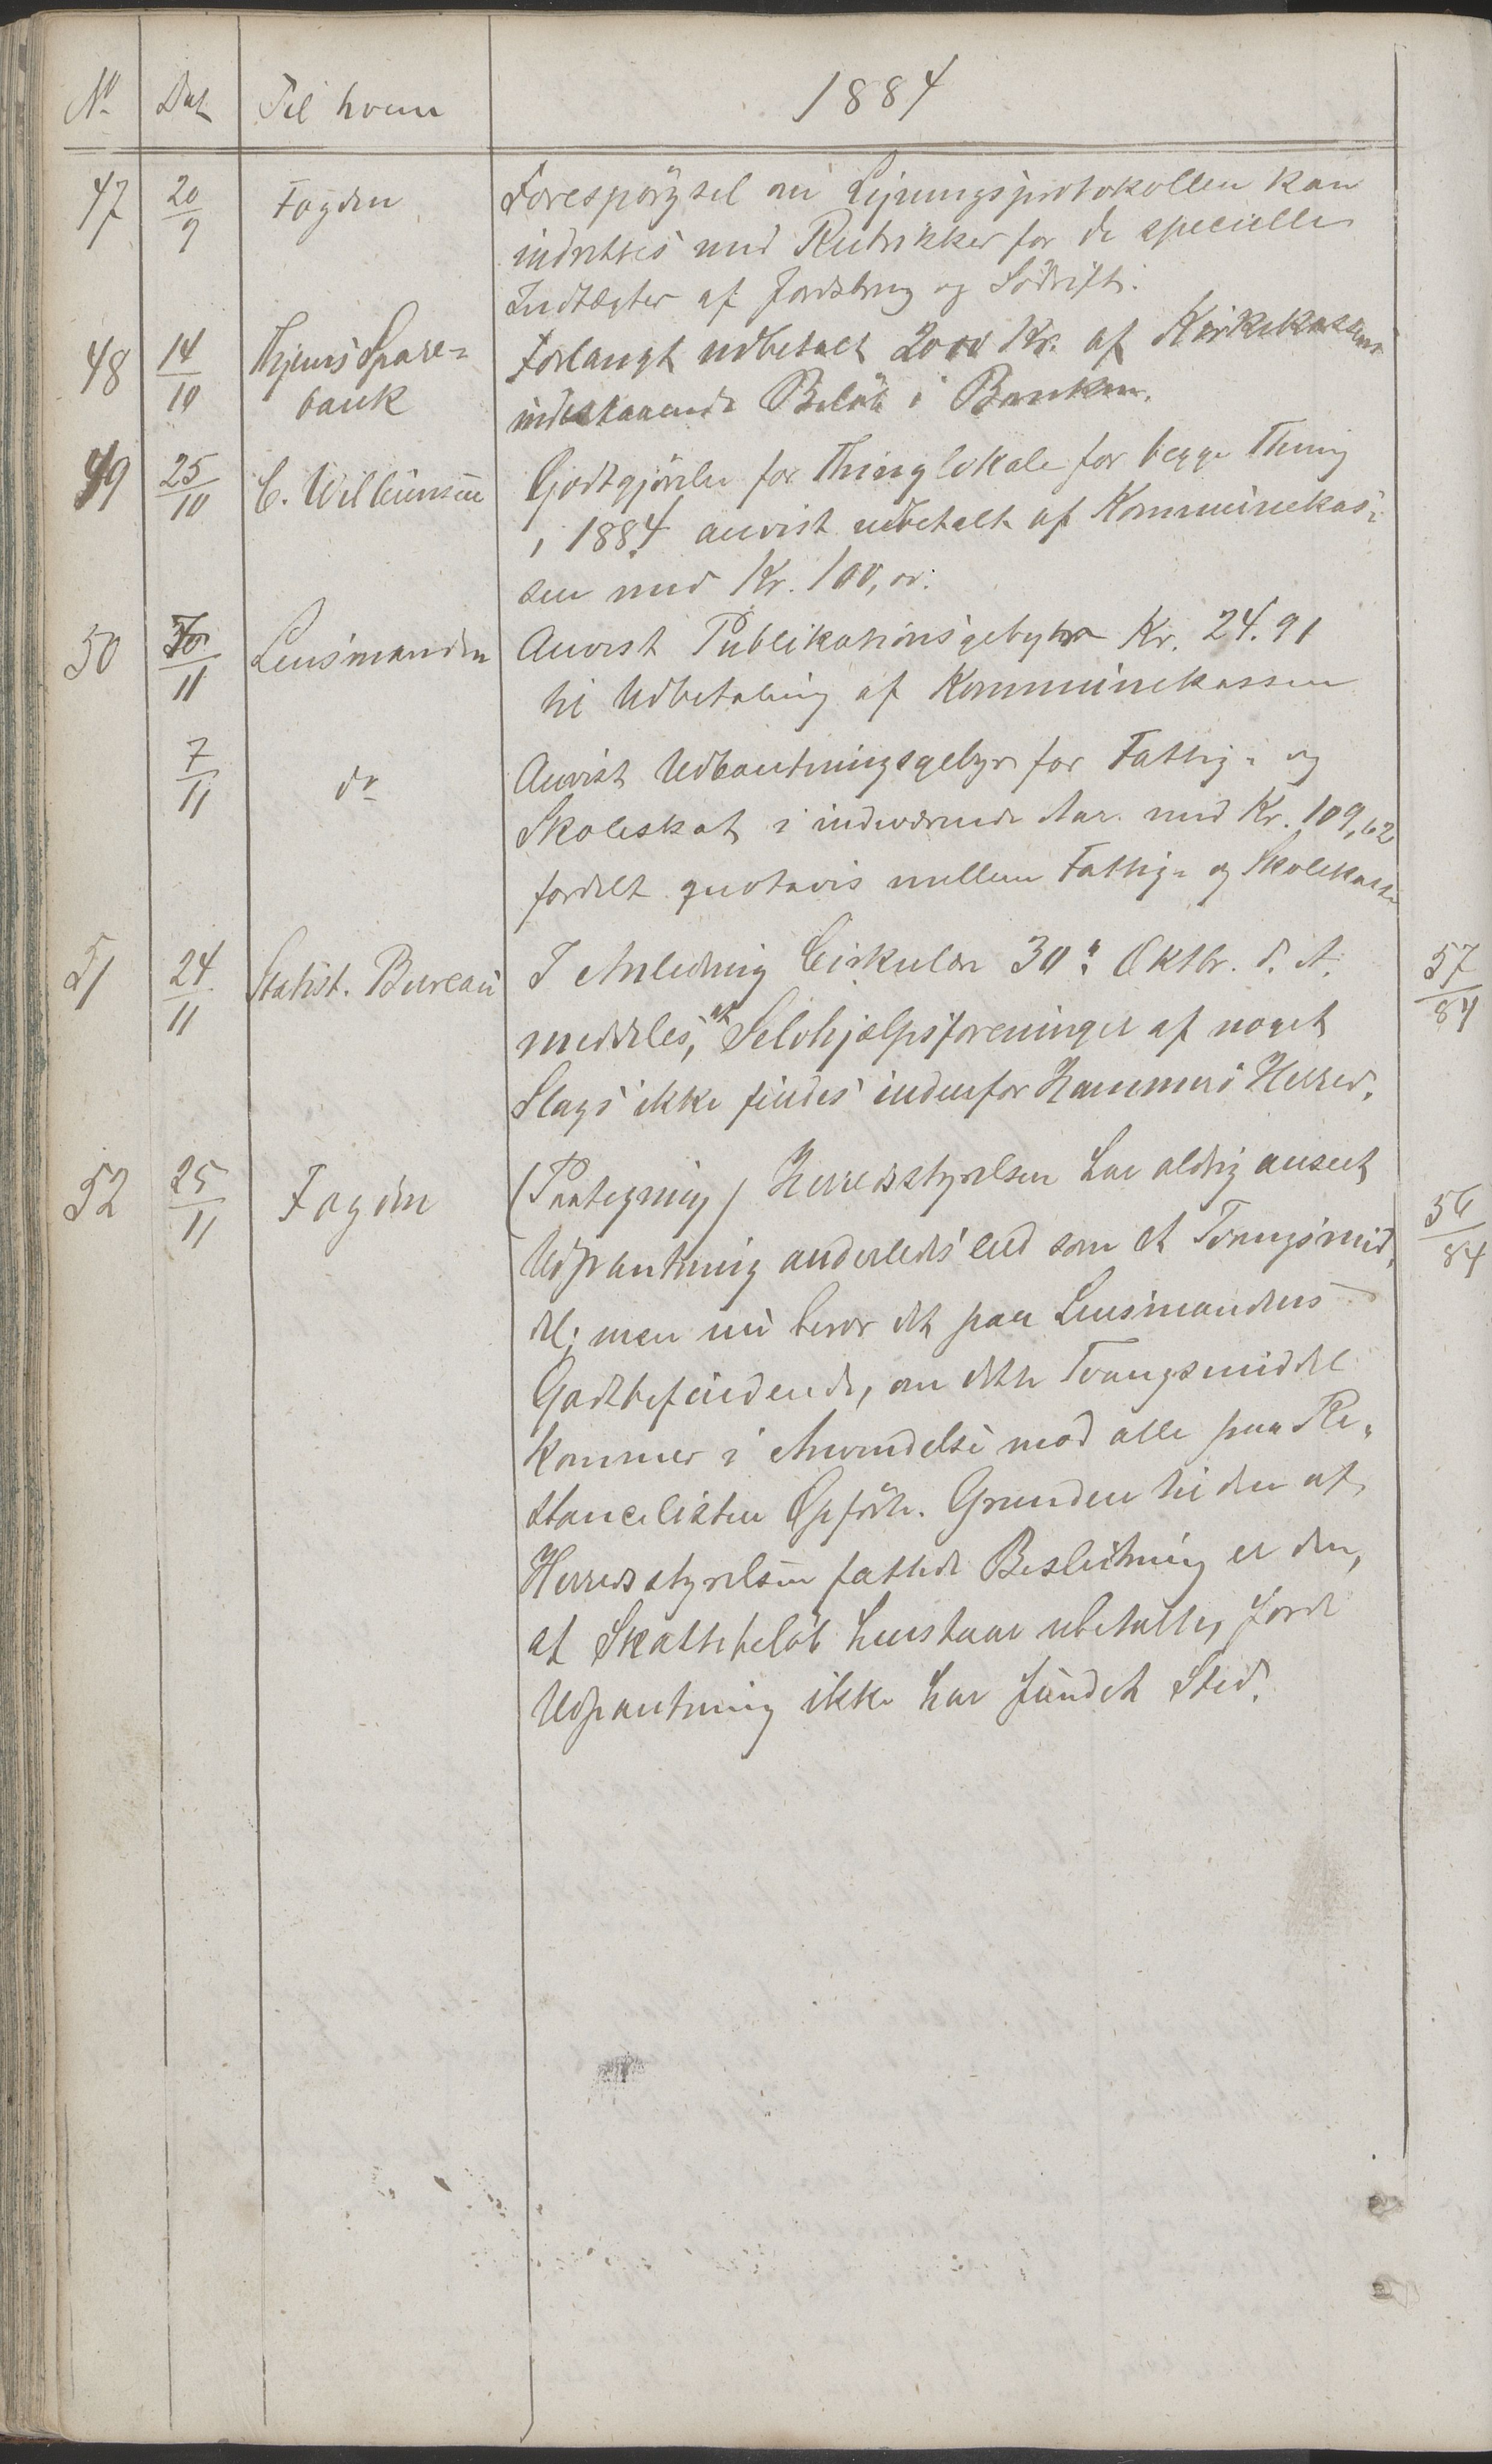 No Dat Til hvem 1884
47 20/9 Fogden Forespörgsel om Ligningsprotokollen kan
indrettes med Rubrikker for de specielle
Indtægter af Jordbrug og Södrift.
48 14/10 Spare-
bank
Forlangt udbetalt 2000 Kr. af Kirkekassens
indestaaende Belöb i Banken.
49 25/10 C. Wilhumsen Godtgjörelse for Thinglokale for begge Thing
i 1884 anvist udbetalt af Kommunekas-
sen med Kr. 100, or.
50 30/11 Lensmanden Anvist Publikationsgebyhr Kr. 24.91
til Udbetaling af Kommunekassen
7/11 do Anvist Udpantningsgebyr for Fattig- og
Skoleskat i indeværende Aar med Kr. 109,62
fordelt qvotavis mellem Fattig- og Skolekasse
51 24/11 Statist. Bureau I Anledning Cirkulær 30: Oktbr. d. A. 57/84
meddeles, at Selvhjælpsforeninger af noget
Slags ikke findes indenfor Hammers Herred.
52 25/11 Fogden (Paategning) Herredsstyrelsen har aldrig anseet 56/84
Udpantning anderledes end som et Tvangsmid-
del; men nu beror det paa Lensmandens
Godtbefindende, om dette Tvangsmiddel
kommer i Anvendelse mod alle paa Re-
stancelisten Opförte. Grunden til den af
Herredsstyrelsen fattede Beslutning er den,
at Skattebelöb henstaar ubetalte, fordi
Udpantning ikke har fundet Sted.